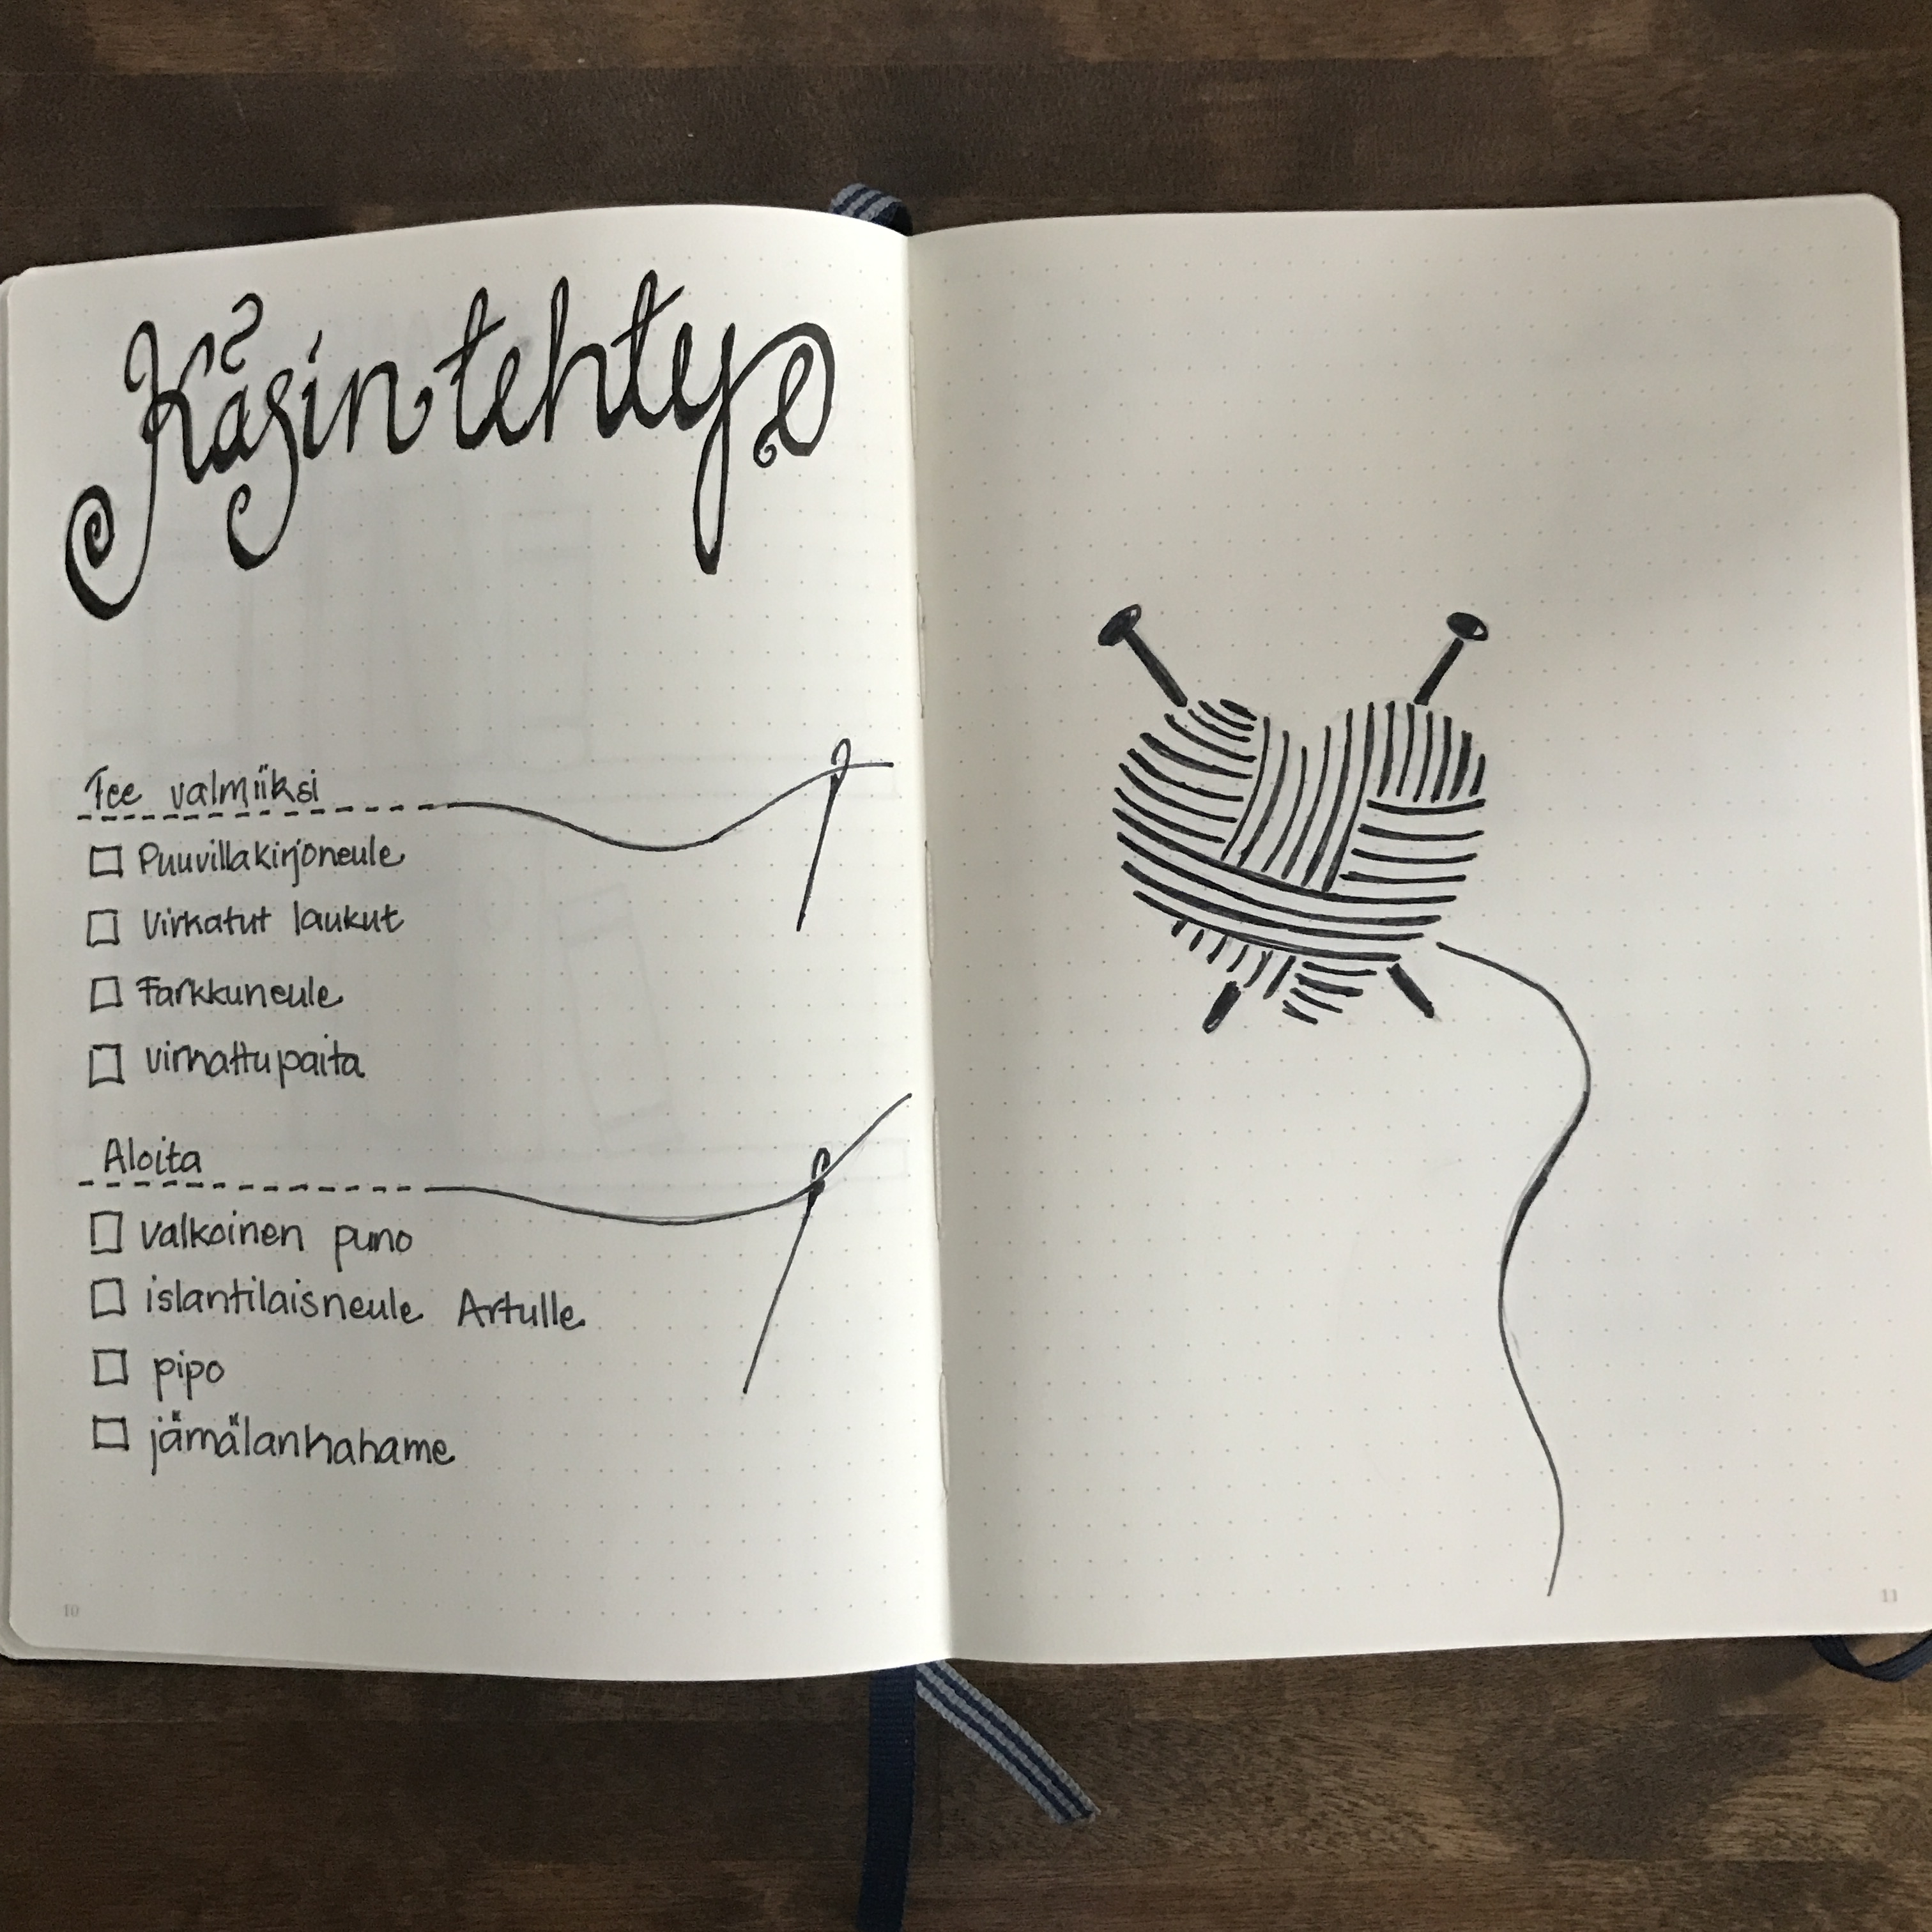 Käsintehty
Tee valmiiksi
Puuvillakirjoneule
Virkatut laukut
Farkkuneule
virkattu paita
Aloita
valkoinen puno
islantilaisneule Artulle
pipo
jämälankahame
10
11